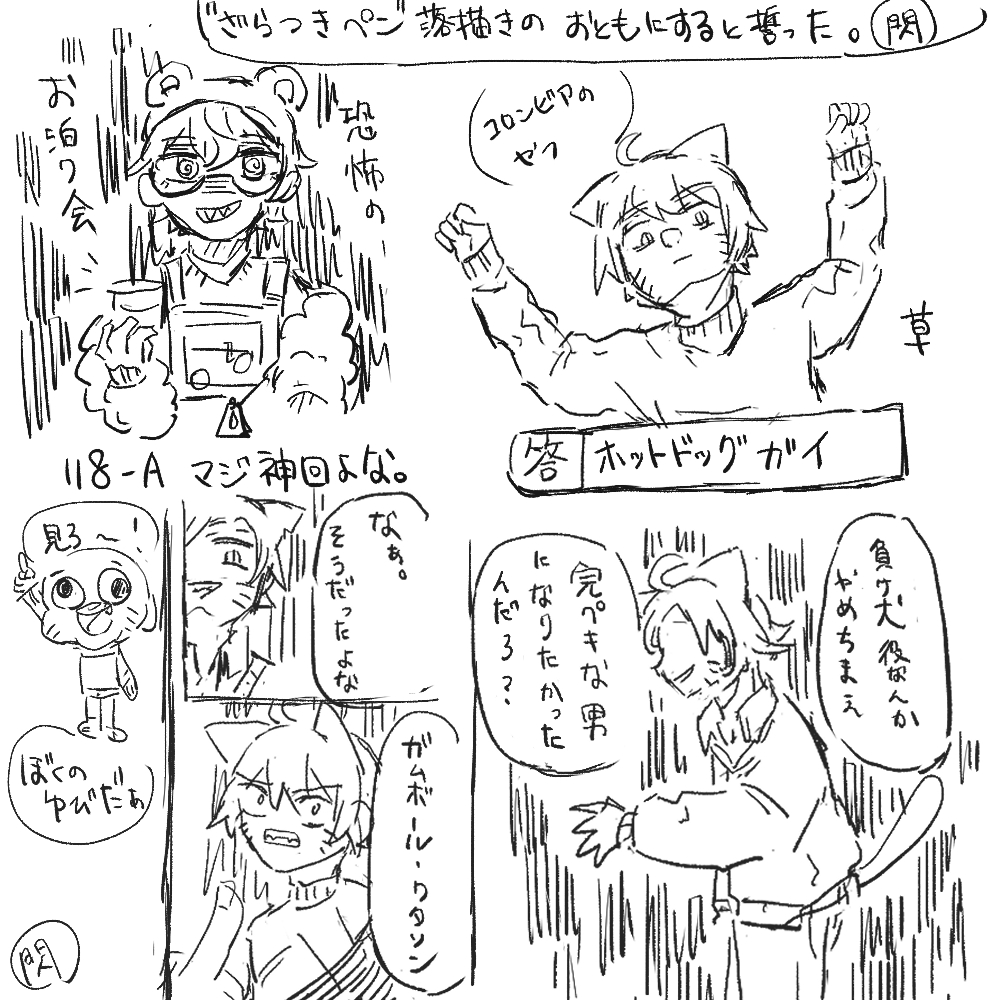 "ざらつきペン"落描きの おともにすると誓った。閃
恐怖の
お泊り会
コロンビアの
やつ
草
答 ホットドッグガイ
118-A マジ神回よな。
見ろ〜!
ぼくの
ゆびだぁ
なぁ。
そうだったよな
ガムボール・ワタソン
負け犬役なんか
やめちまえ
完ぺきな男
になりたかった
んだろ?
閃